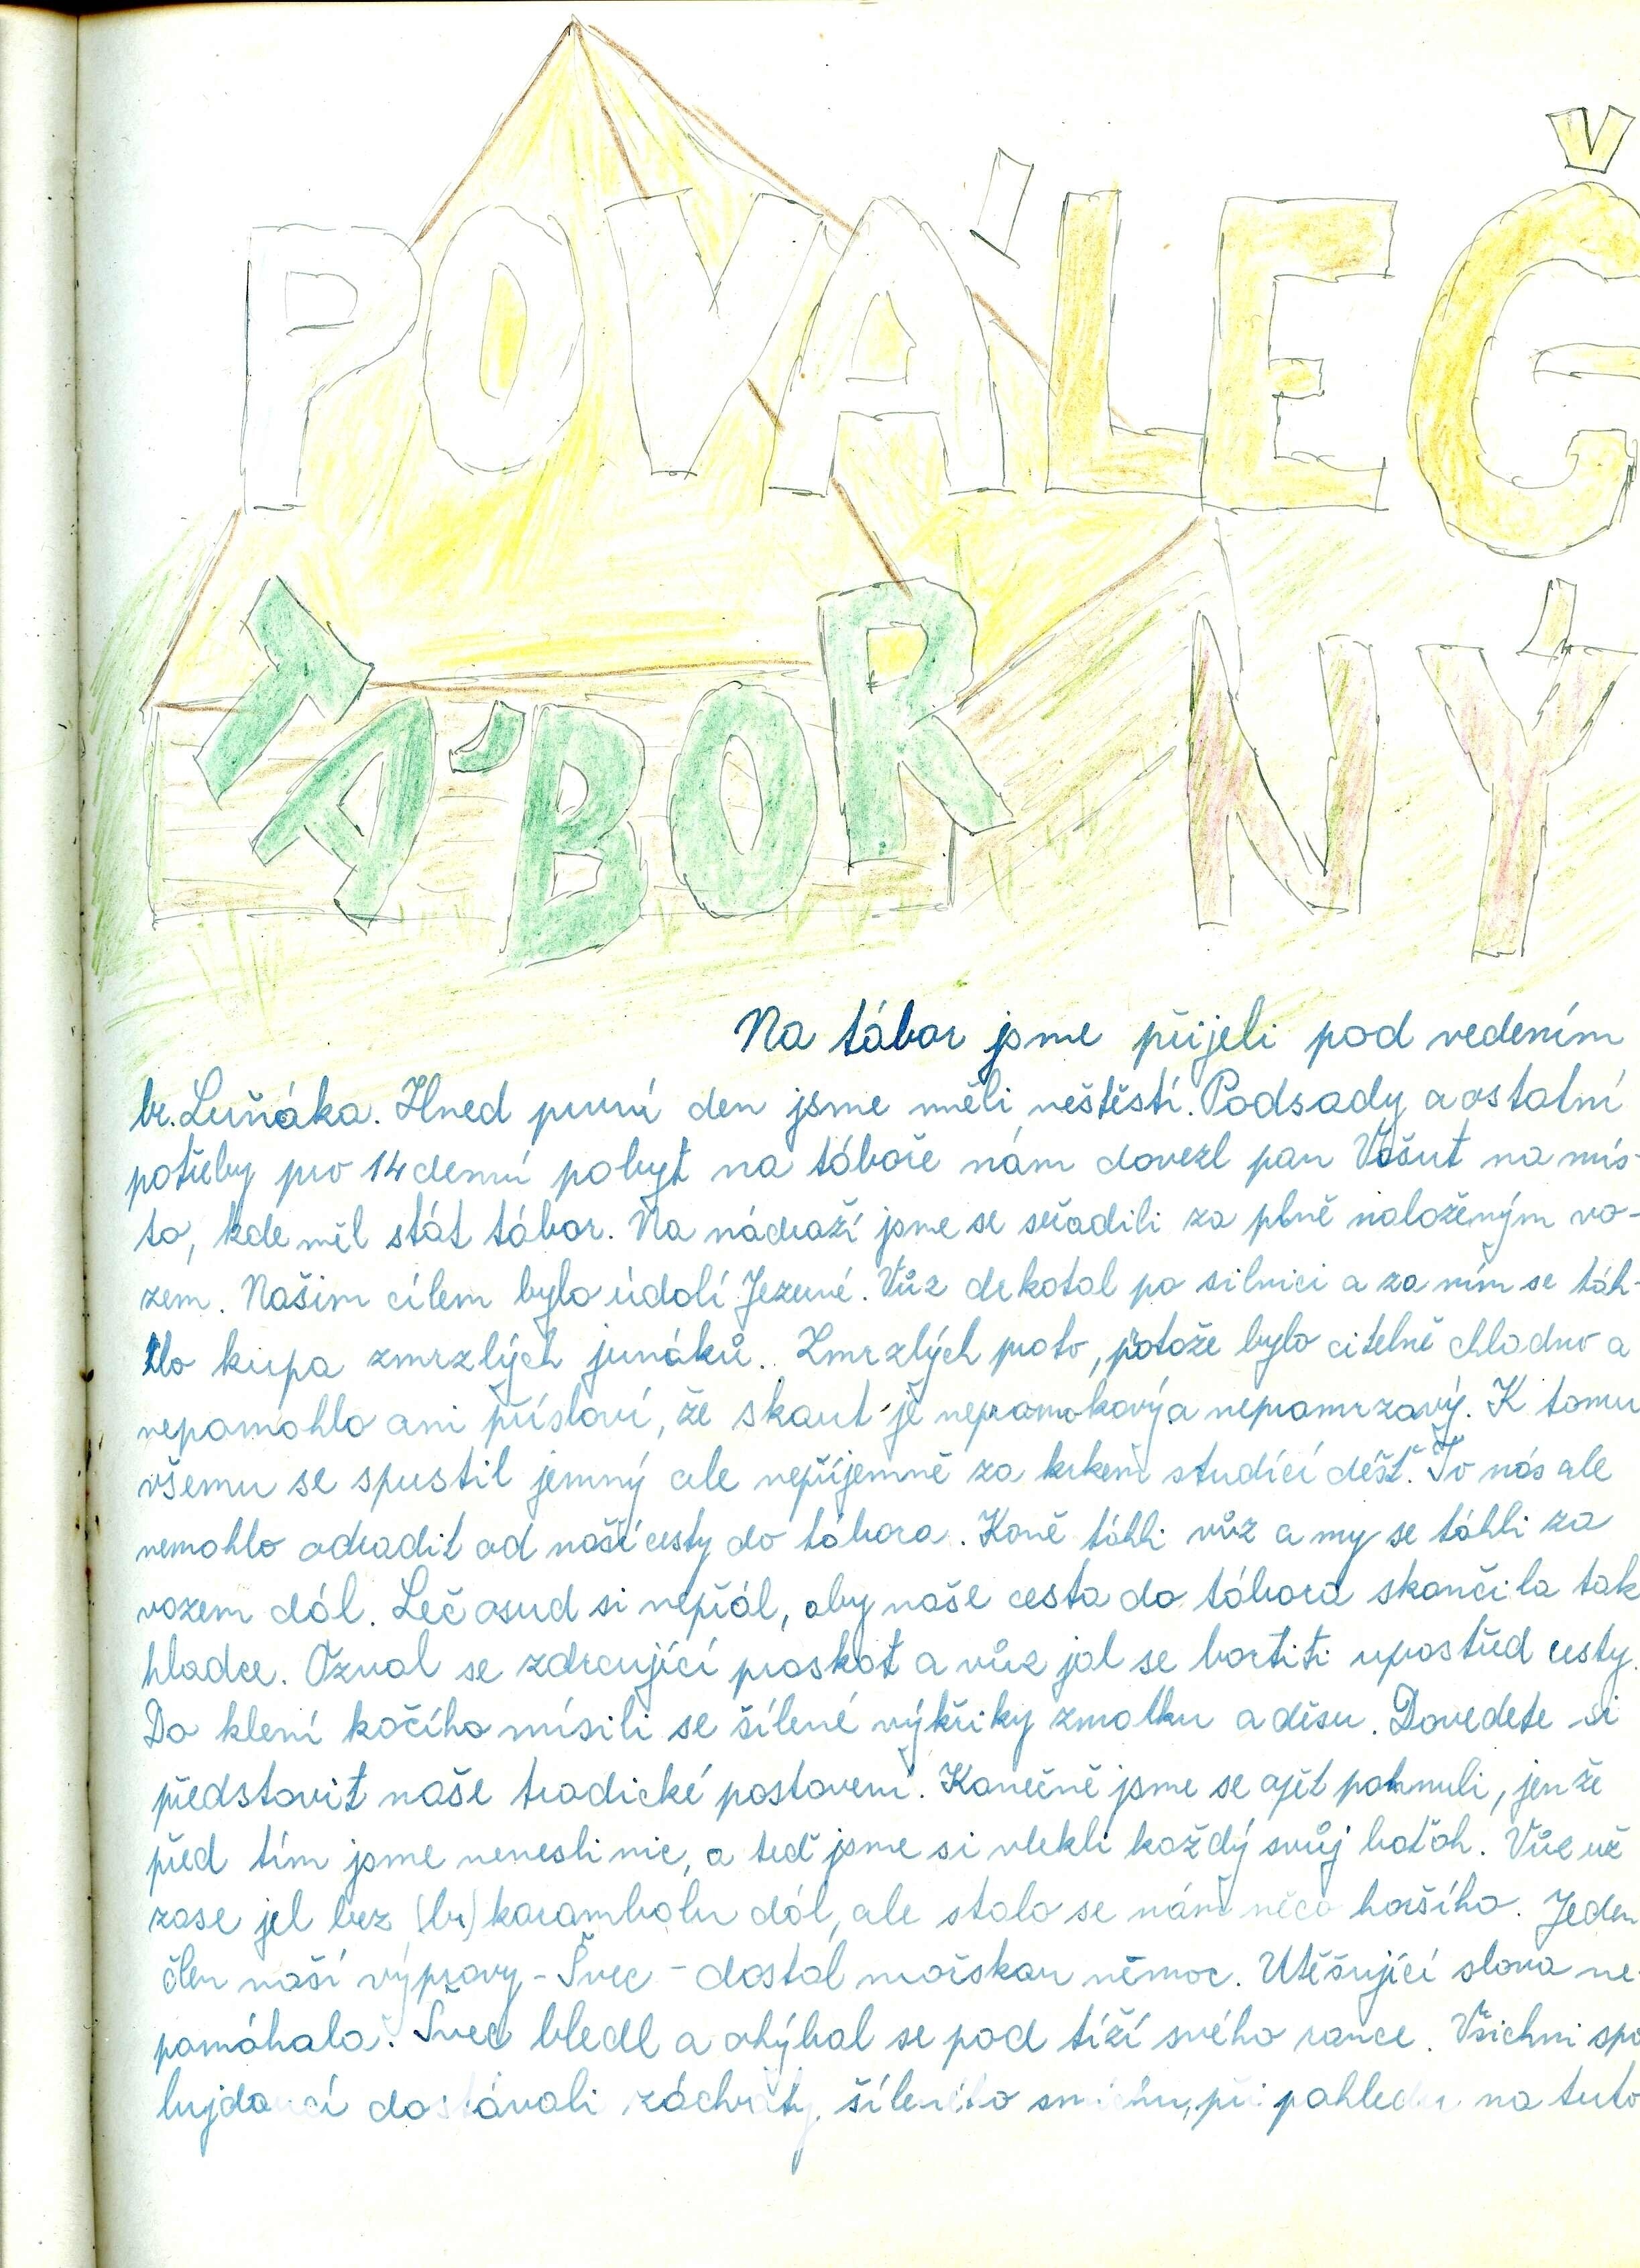 POVÁLEČ
NÝ
TÁBOR
Na tábor jsme přijeli pod vedením
br. Luňáka. Hned první den jsme měli neštěstí. Podsady a ostatní
potřeby pro 14 denní pobyt na táboře nám dovezl pan Vošut na mís-
to, kde měl stát tábor. Na nádraží jsme se seřadili za plně naloženým vo-
zem. Našim cílem bylo údolí Jezerné. Vůz drkotal po silnici a za ním se táh-
lo kupa zmrzlých junáků. Zmrzlých proto, potože bylo citelně chladno a
nepomohlo ani přísloví, že skaut je nepromokavý a nepromrzavý. K tomu
všemu se spustil jemný ale nepříjemně za krkem studící déšť. To nás ale
nemohlo odradit od naší cesty do tábora. Koně táhli vůz a my se táhli za
vozem dál. Leč osud si nepřál, aby naše cesta do tábora skončila tak
hladce. Ozval se zdrcující praskot a vůz jal se bortiti uprostřed cesty.
Do klení kočího mísili se šílené výkřiky zmatku a děsu. Dovedete si
představit naše tradické postavení. Konečně jsme se opět pohnuli, jenže
před tím jsme nenesli nic, a teď jsme si vlekli každý svůj batoh. Vůz už
zase jel bez (br) karambolu dál, ale stalo se nám něco horšího. Jeden
člen naší výpravy - Švec - dostal mořskou němoc. Utěšující slova ne-
pomáhala. Švec bledl a ohýbal se pod tíží svého rance. Všichni spo
lujdoucí dostávali záchvaty šíleného smíchu, při pohledu na tuto